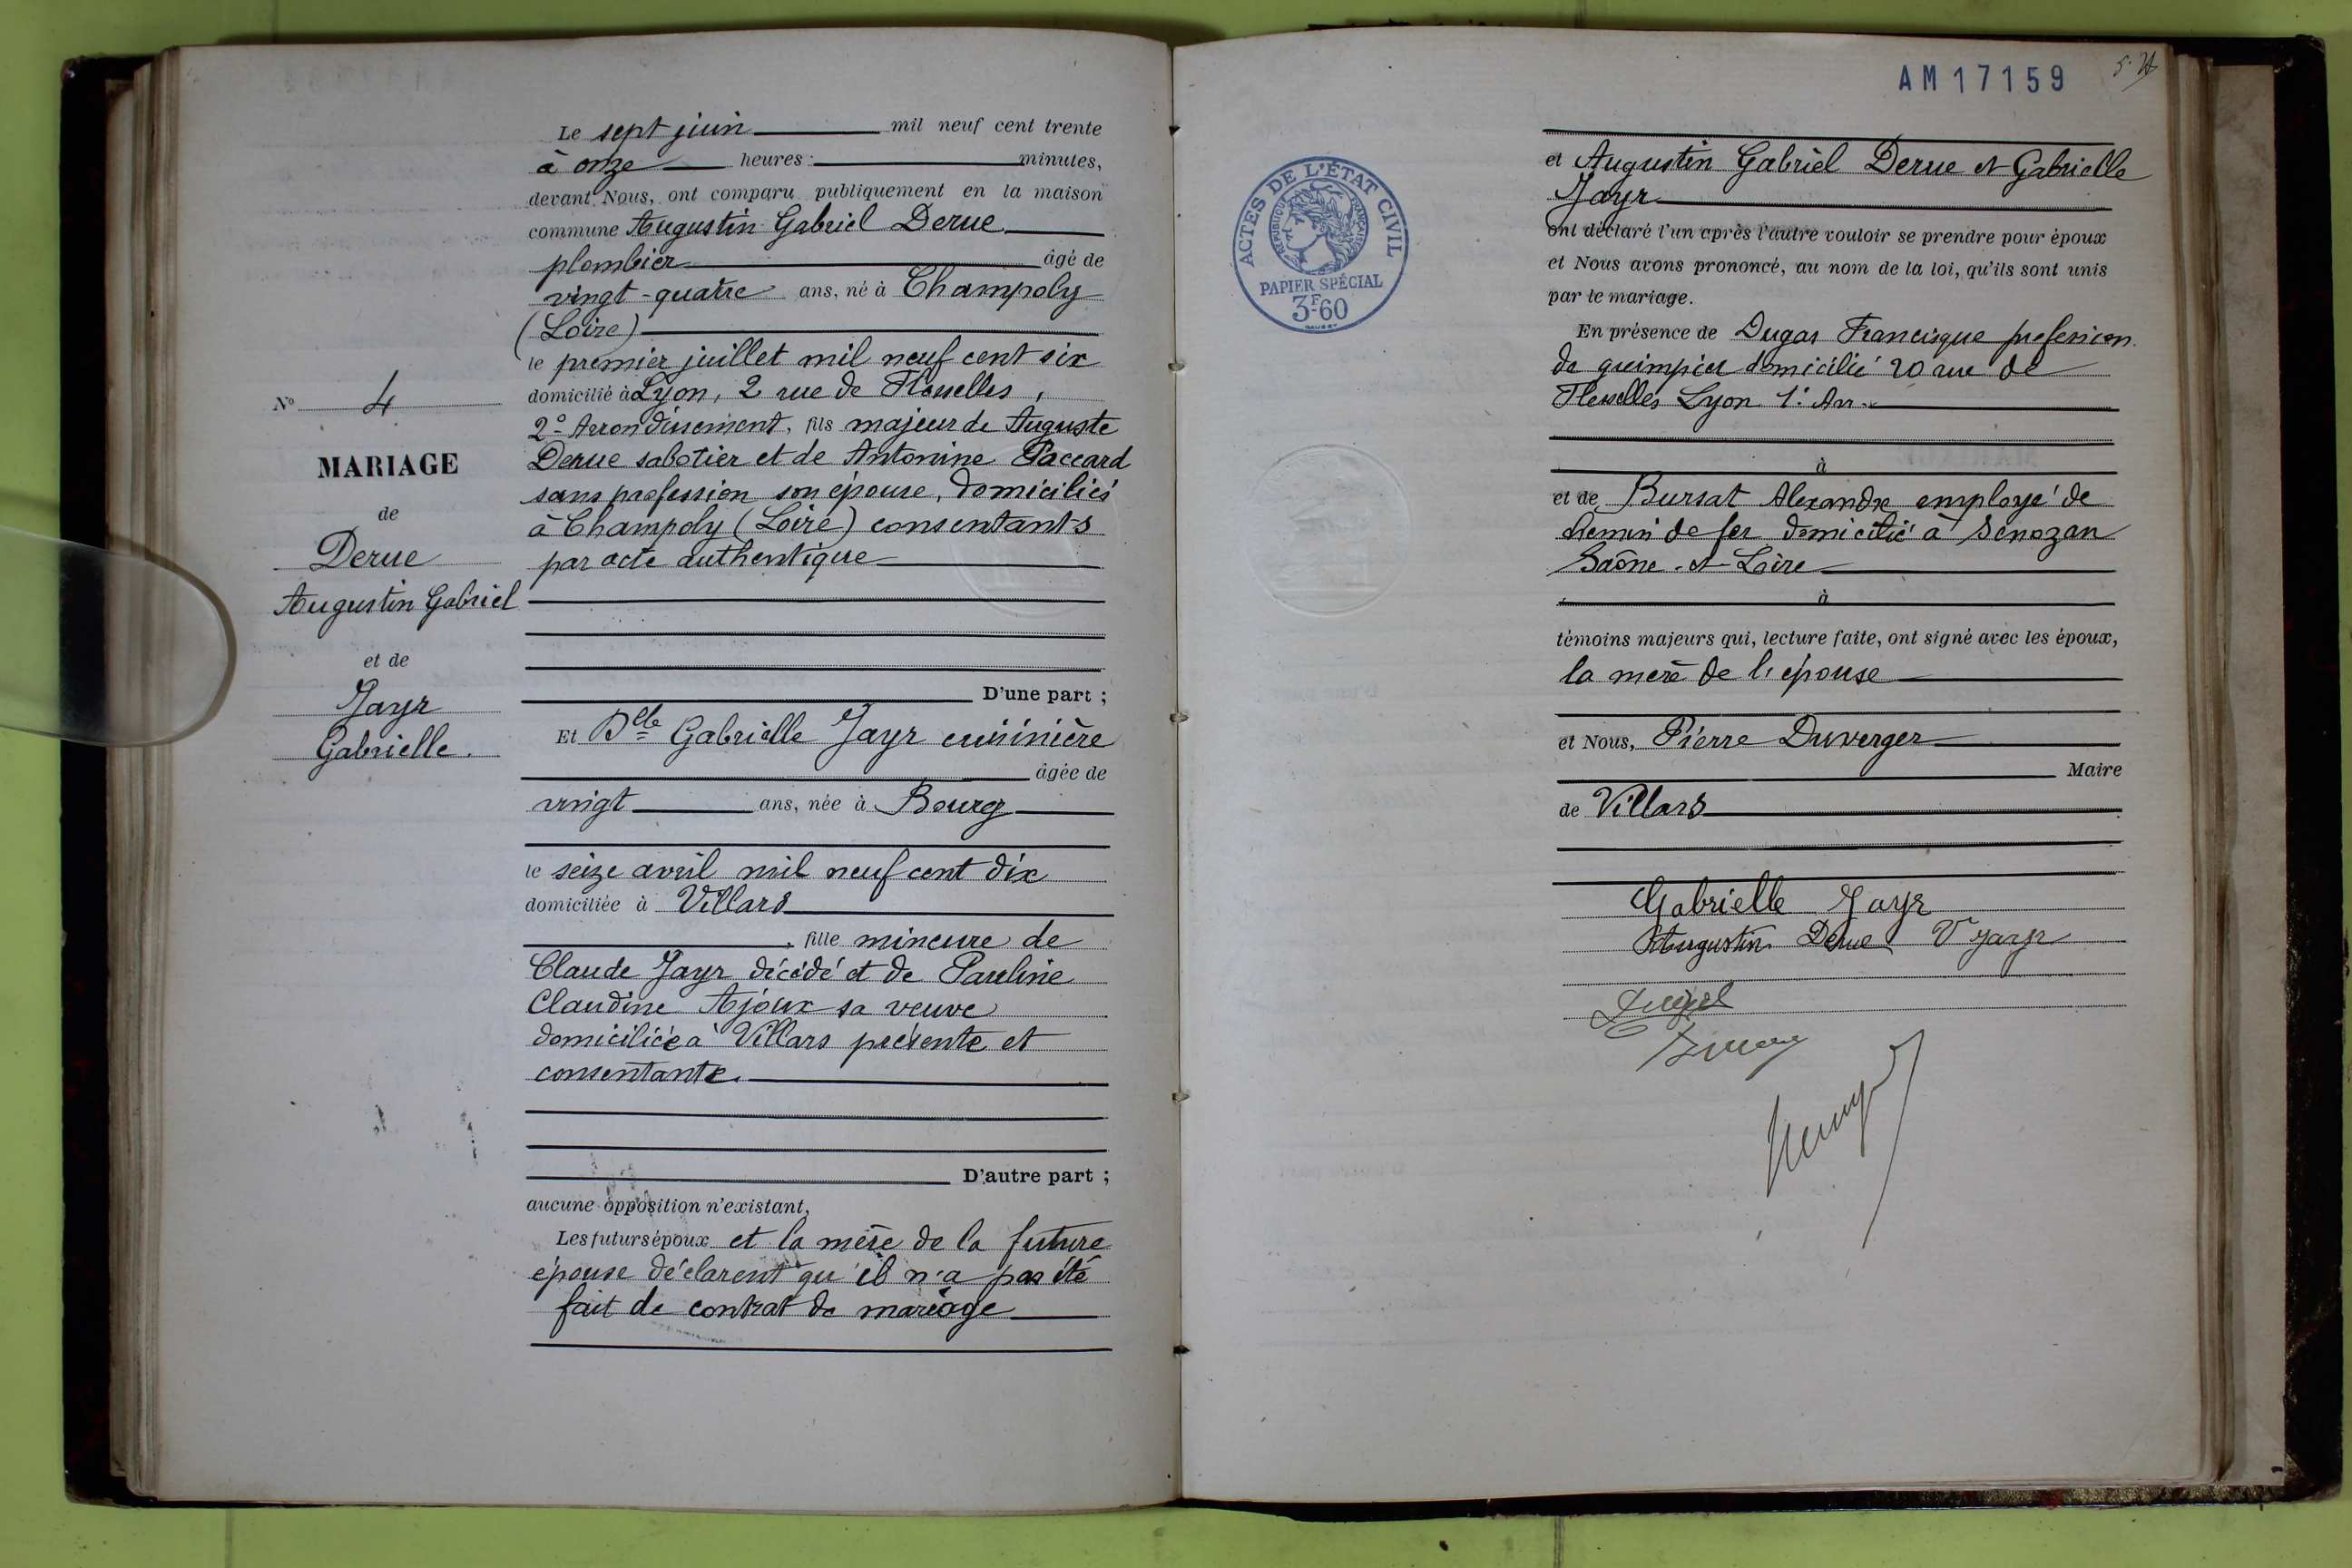 Le sept juin mil neuf cent trente
à onze heures : minutes,
devant Nous, ont comparu publiquement en la maison
commune Augustin Gabriel Derue
plombier âgé de
vingt-quatre ans, né à Champoly
(Loire)
le premier juillet mil neuf cent six
domicilié à Lyon, 2 rue de Flesselles,
2e Arrondissement, fils majeur de Auguste
Derue sabotier et de Antonine Paccard
sans profession son épouse, domiciliés
à Champoly (Loire) consentants
par acte authentique
D'une part ;
Nº 4
MARIAGE
de
Derue
Augustin Gabriel
et de
Jayr
Gabrielle.
Et Dlle Gabrielle Jayr cuisinière
âgée de
vingt ans, née à Bourg
le seize avril mil neuf cent dix
domiciliée à Villars
, fille mineure de
Claude Jayr décédé et de Pauline
Claudine Ajoux sa veuve
domiciliée à Villars présente et
consentante.
D'autre part ;
aucune opposition n'existant,
Les futurs époux et la mère de la future
épouse déclarent qu'il n'a pas été
fait de contrat de mariage
AM17159
ACTES DE L'ÉTAT CIVIL
RÉPUBLIQUE FRANÇAISE
PAPIER SPÉCIAL
3F60
et Augustin Gabriel Derue et Gabrielle
Jayr
ont déclaré l'un après l'autre vouloir se prendre pour époux
et Nous avons prononcé, au nom de la loi, qu'ils sont unis
par le mariage.
En présence de Dugas Francisque profession
de guimpier domicilié 20 rue de
Flesselles Lyon 1: Arr.
à
et de Bursat Alexandre employé de
chemin de fer domicilié à Senozan
Saône-et-Loire
à
témoins majeurs qui, lecture faite, ont signé avec les époux,
la mère de l'épouse
et Nous, Pierre Duverger
Maire
de Villars
Gabrielle Jayr
Augustin Derue V Jayr